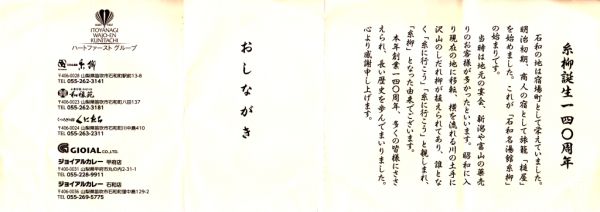 糸柳誕生一四〇周年
石和の地は宿場町として栄えていました。
明治初期、商人の宿として旅籠「槌屋」
を始めました。これが「石和名湯館糸柳」
の始まりです。
当時は地元の宴会、新潟や富山の薬売
りのお客様が多かったといいます。昭和に入
り現在の地に移転、横を流れる川の土手に
沢山のしだれ柳が植えられてあり、誰とな
く「糸に行こう」「糸に行こう」と親しまれ、
「糸柳」となった由来でございます。
本年創業一四〇周年、多くの皆様にささ
えられ、長い歴史を歩んでまいりました。
心より感謝申し上げます。
おしながき
ITOYANAGI
WAJO-EN
KUNITACHI
ハートファースト グループ
糸柳
〒406-0028 山梨県笛吹市石和町駅前13-8
TEL 055-262-3141
和穣苑
〒406-0023 山梨県笛吹市石和町八田137
TEL 055-262-3181
くにたち
〒406-0024 山梨県笛吹市石和町川中島410
TEL 055-263-2311
GIOIAL CO.,LTD.
ジョイアルカレー 甲府店
〒400-0031 山梨県甲府市丸の内2-31-1
TEL 055-228-9911
ジョイアルカレー 石和店
〒406-0036 山梨県笛吹市石和町窪中島129-2
TEL 055-269-5775